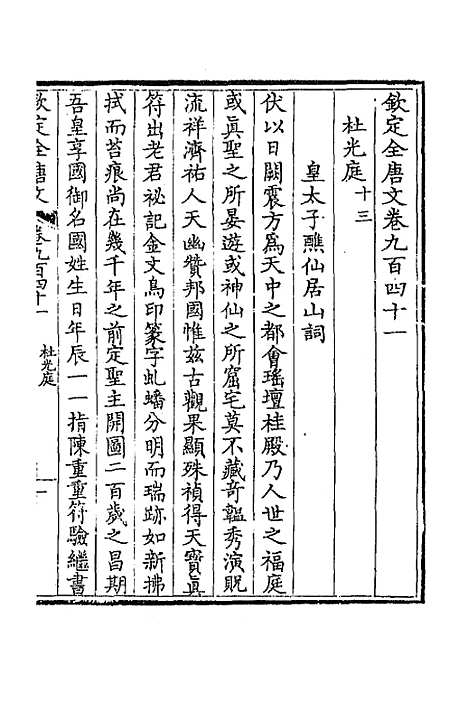 欽定全唐文卷九百四十一
杜光庭十三
皇太子醮仙居山詞
伏以日闕震方爲天中之都會瑤壇桂殿乃人世之福庭
或眞聖之所晏遊或神仙之所窟宅莫不藏奇韞秀演貺
流祥濟祐人天幽贊邦國惟茲古觀果顯殊禎得天寶眞
符出老君祕記金文鳥印篆字虬蟠分明而瑞跡如新拂
拭而苔痕尚在幾千年之前定聖主開圖二百歲之昌期
吾皇享國御名國姓生日年辰一一指陳重重符驗繼書
欽定全唐文 卷九百四十一 杜光庭 一